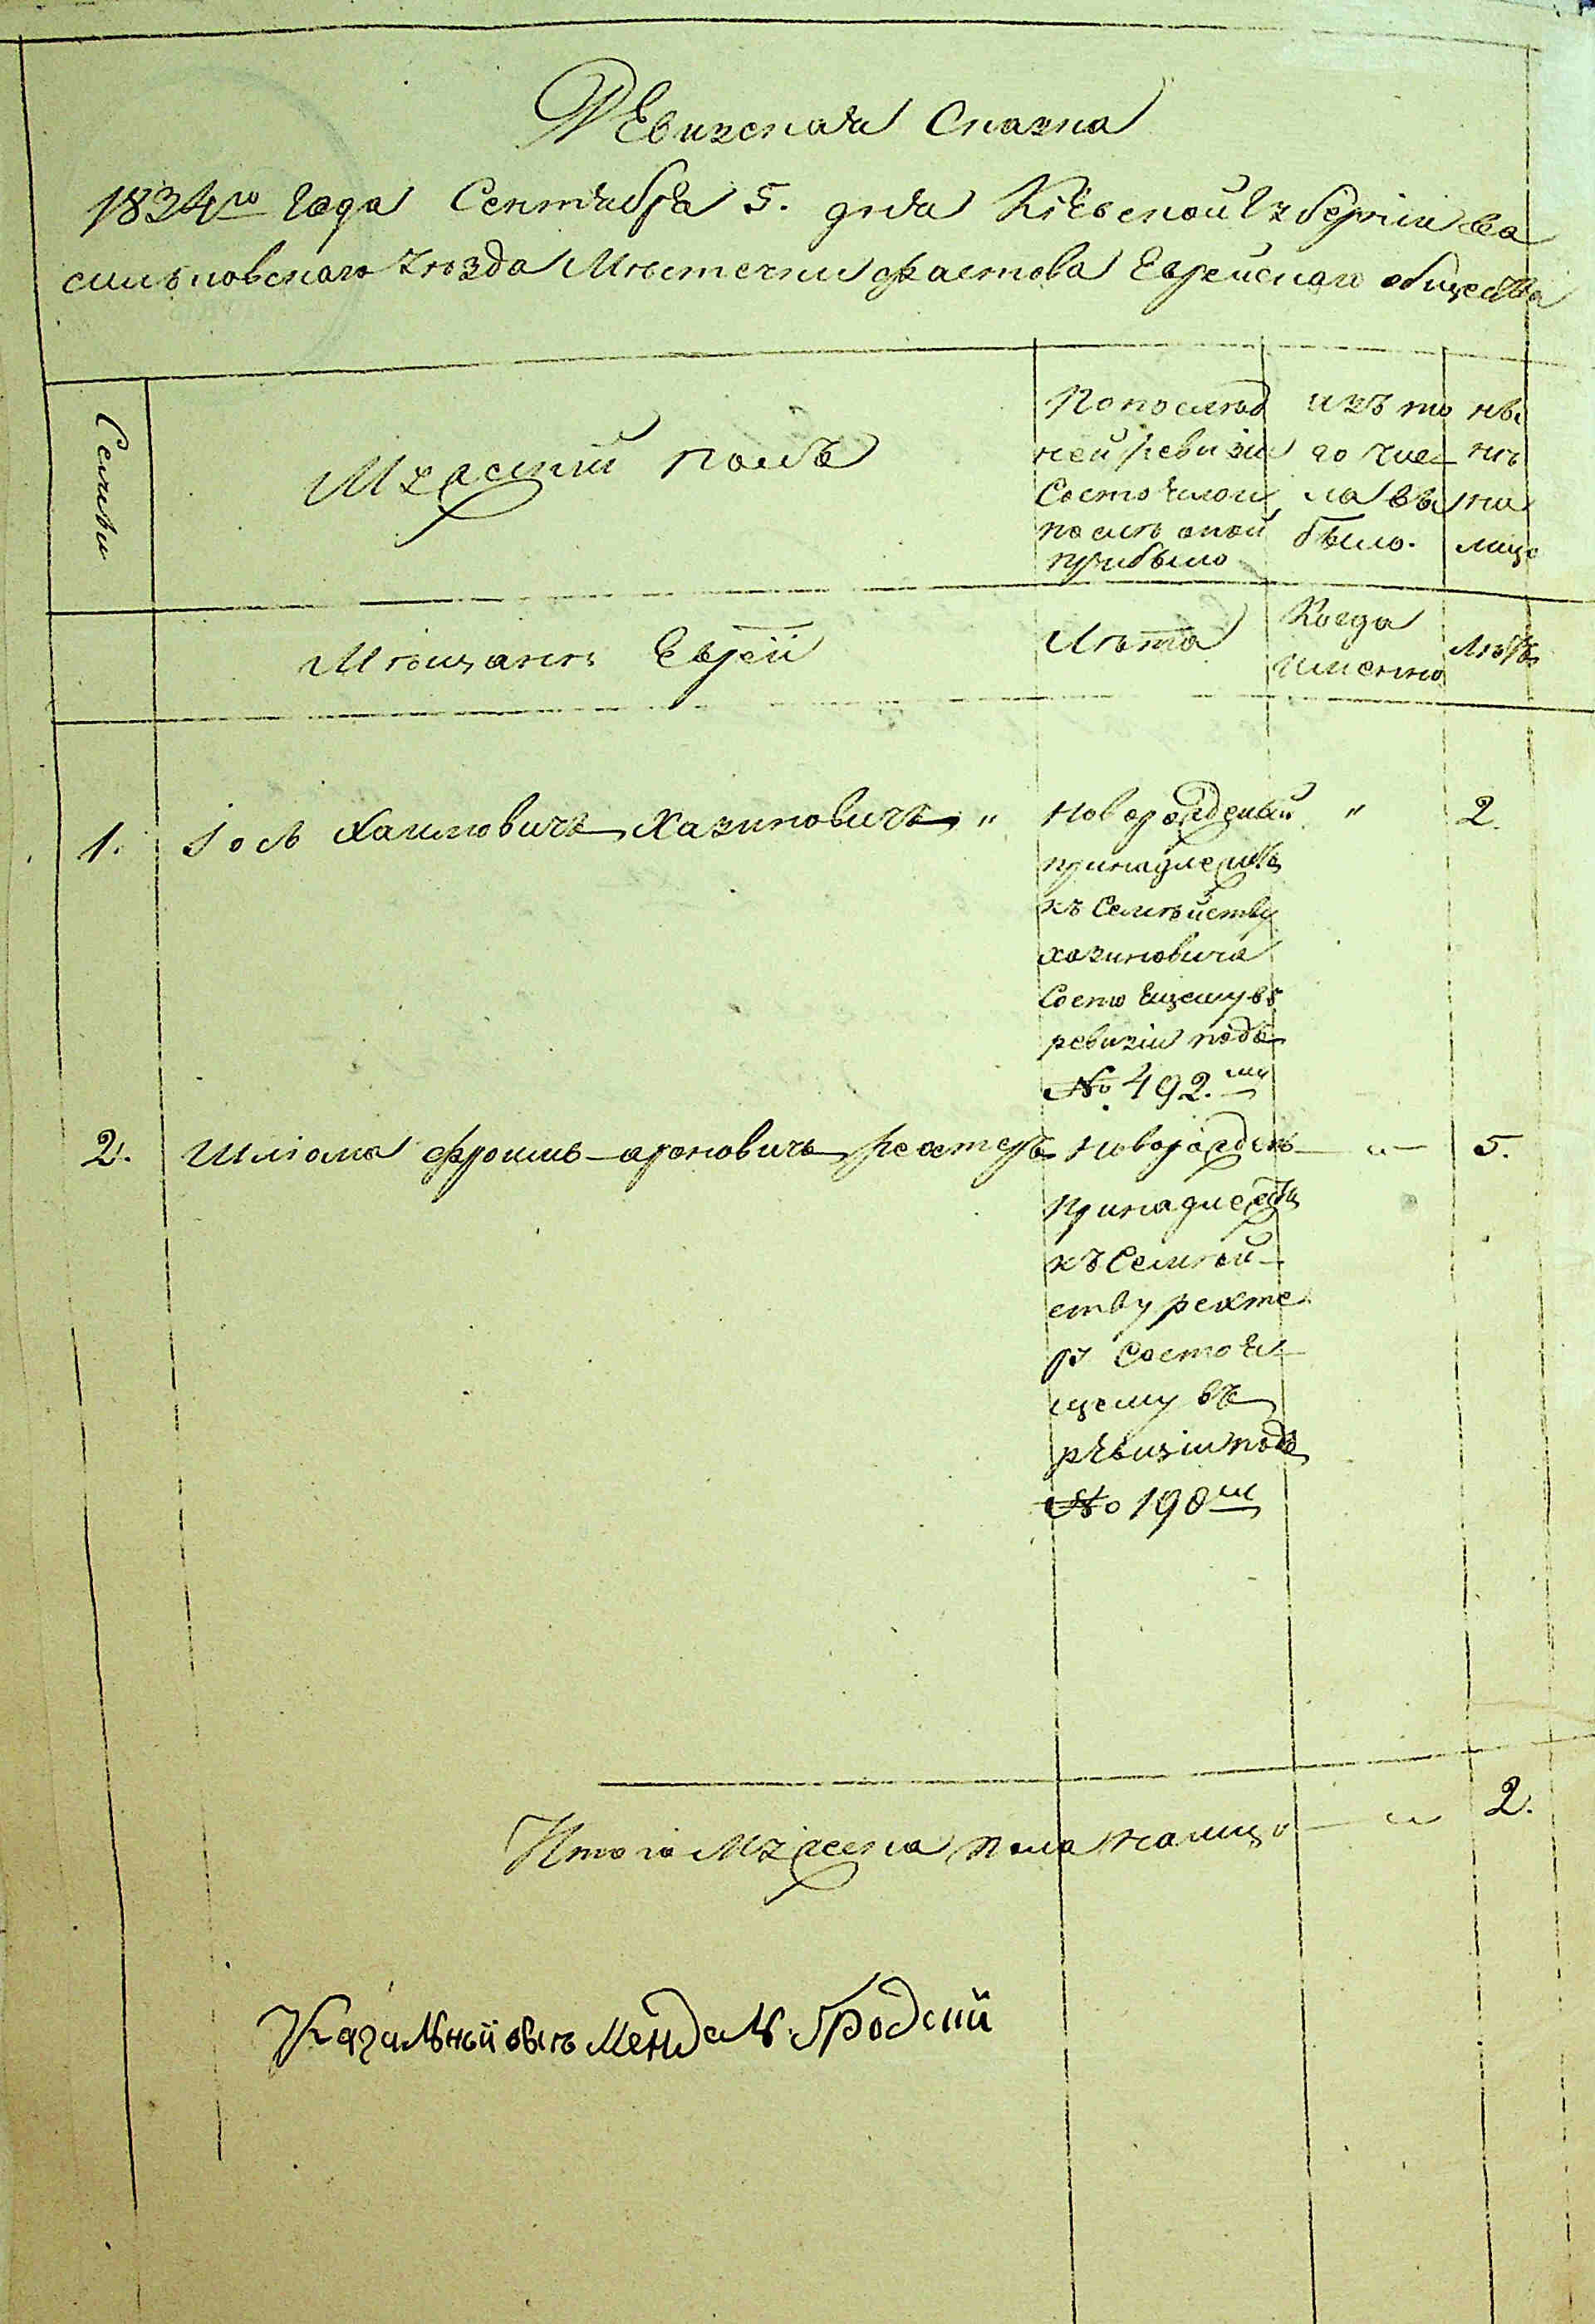 Ревизская Сказка
1834го Года Сентября 5. дня Кіевской Губерніи Ва
сильковского Уезда Местечки Фастова Еврейского общества
Семьи
Мужеский полъ
По послед
ней ревизіи
Состояло и
после оной
прибыло
изъ то
го чис
ла вы
было.
ны
не
на
лице
Мещане Евреи
Лета
Когда
имянно
Лета
1. Іось Хаимовичъ Хазиновичъ " Новорожденый " 2.
принадлежитъ
къ Семейству
хазиновича
Состоящему въ
ревизіи подъ
№ 492.му
2. Шліома Фроимъ-ароновичъ рехтеръ Новорожденъ — " — 5.
принадлежитъ
къ Семей-
ству рехте
ра Состоя-
щему въ
ревизіи подъ
№ 190м
Итого Мужеска пола налицо — " 2.
Кагальный Мендель Бродский